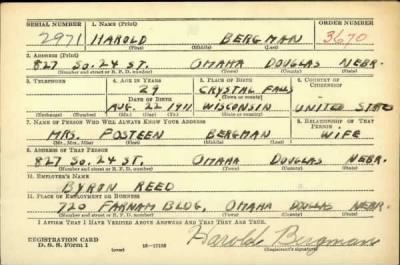 SERIAL NUMBER 1. NAME (Print) ORDER NUMBER
2971 HAROLD BERGMAN 3670
(First) (Middle) (Last)
2. ADDRESS (Print)
827 SO. 24 ST. OMAHA DOUGLAS NEBR.
(Number and street or R. F. D. number) (Town) (County) (State)
3. TELEPHONE 4. AGE IN YEARS 5. PLACE OF BIRTH 6. COUNTRY OF CITIZENSHIP
29 CRYSTAL FALLS
DATE OF BIRTH (Town or county)
AUG. 22 1911 WISCONSIN UNITED STATES
(Exchange) (Number) (Mo.) (Day) (Yr.) (State or country)
7. NAME OF PERSON WHO WILL ALWAYS KNOW YOUR ADDRESS 8. RELATIONSHIP OF THAT PERSON
MRS. POSTEEN BERGMAN WIFE
(Mr., Mrs., Miss) (First) (Middle) (Last)
9. ADDRESS OF THAT PERSON
827 SO. 24 ST. OMAHA DOUGLAS NEBR.
(Number and street or R. F. D. number) (Town) (County) (State)
10. EMPLOYER'S NAME
BYRON REED
11. PLACE OF EMPLOYMENT OR BUSINESS
720 FARNAM BLDG, OMAHA DOUGLAS NEBR.
(Number and street or R. F. D. number) (Town) (County) (State)
I AFFIRM THAT I HAVE VERIFIED ABOVE ANSWERS AND THAT THEY ARE TRUE.
REGISTRATION CARD
D. S. S. Form 1 (over) 16—17105 Harold Bergman
(Registrant's signature)